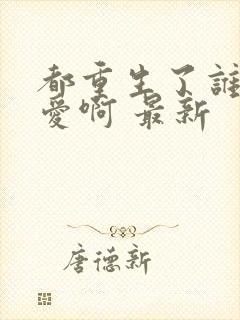 都重生了誰
愛啊 最新
唐德新